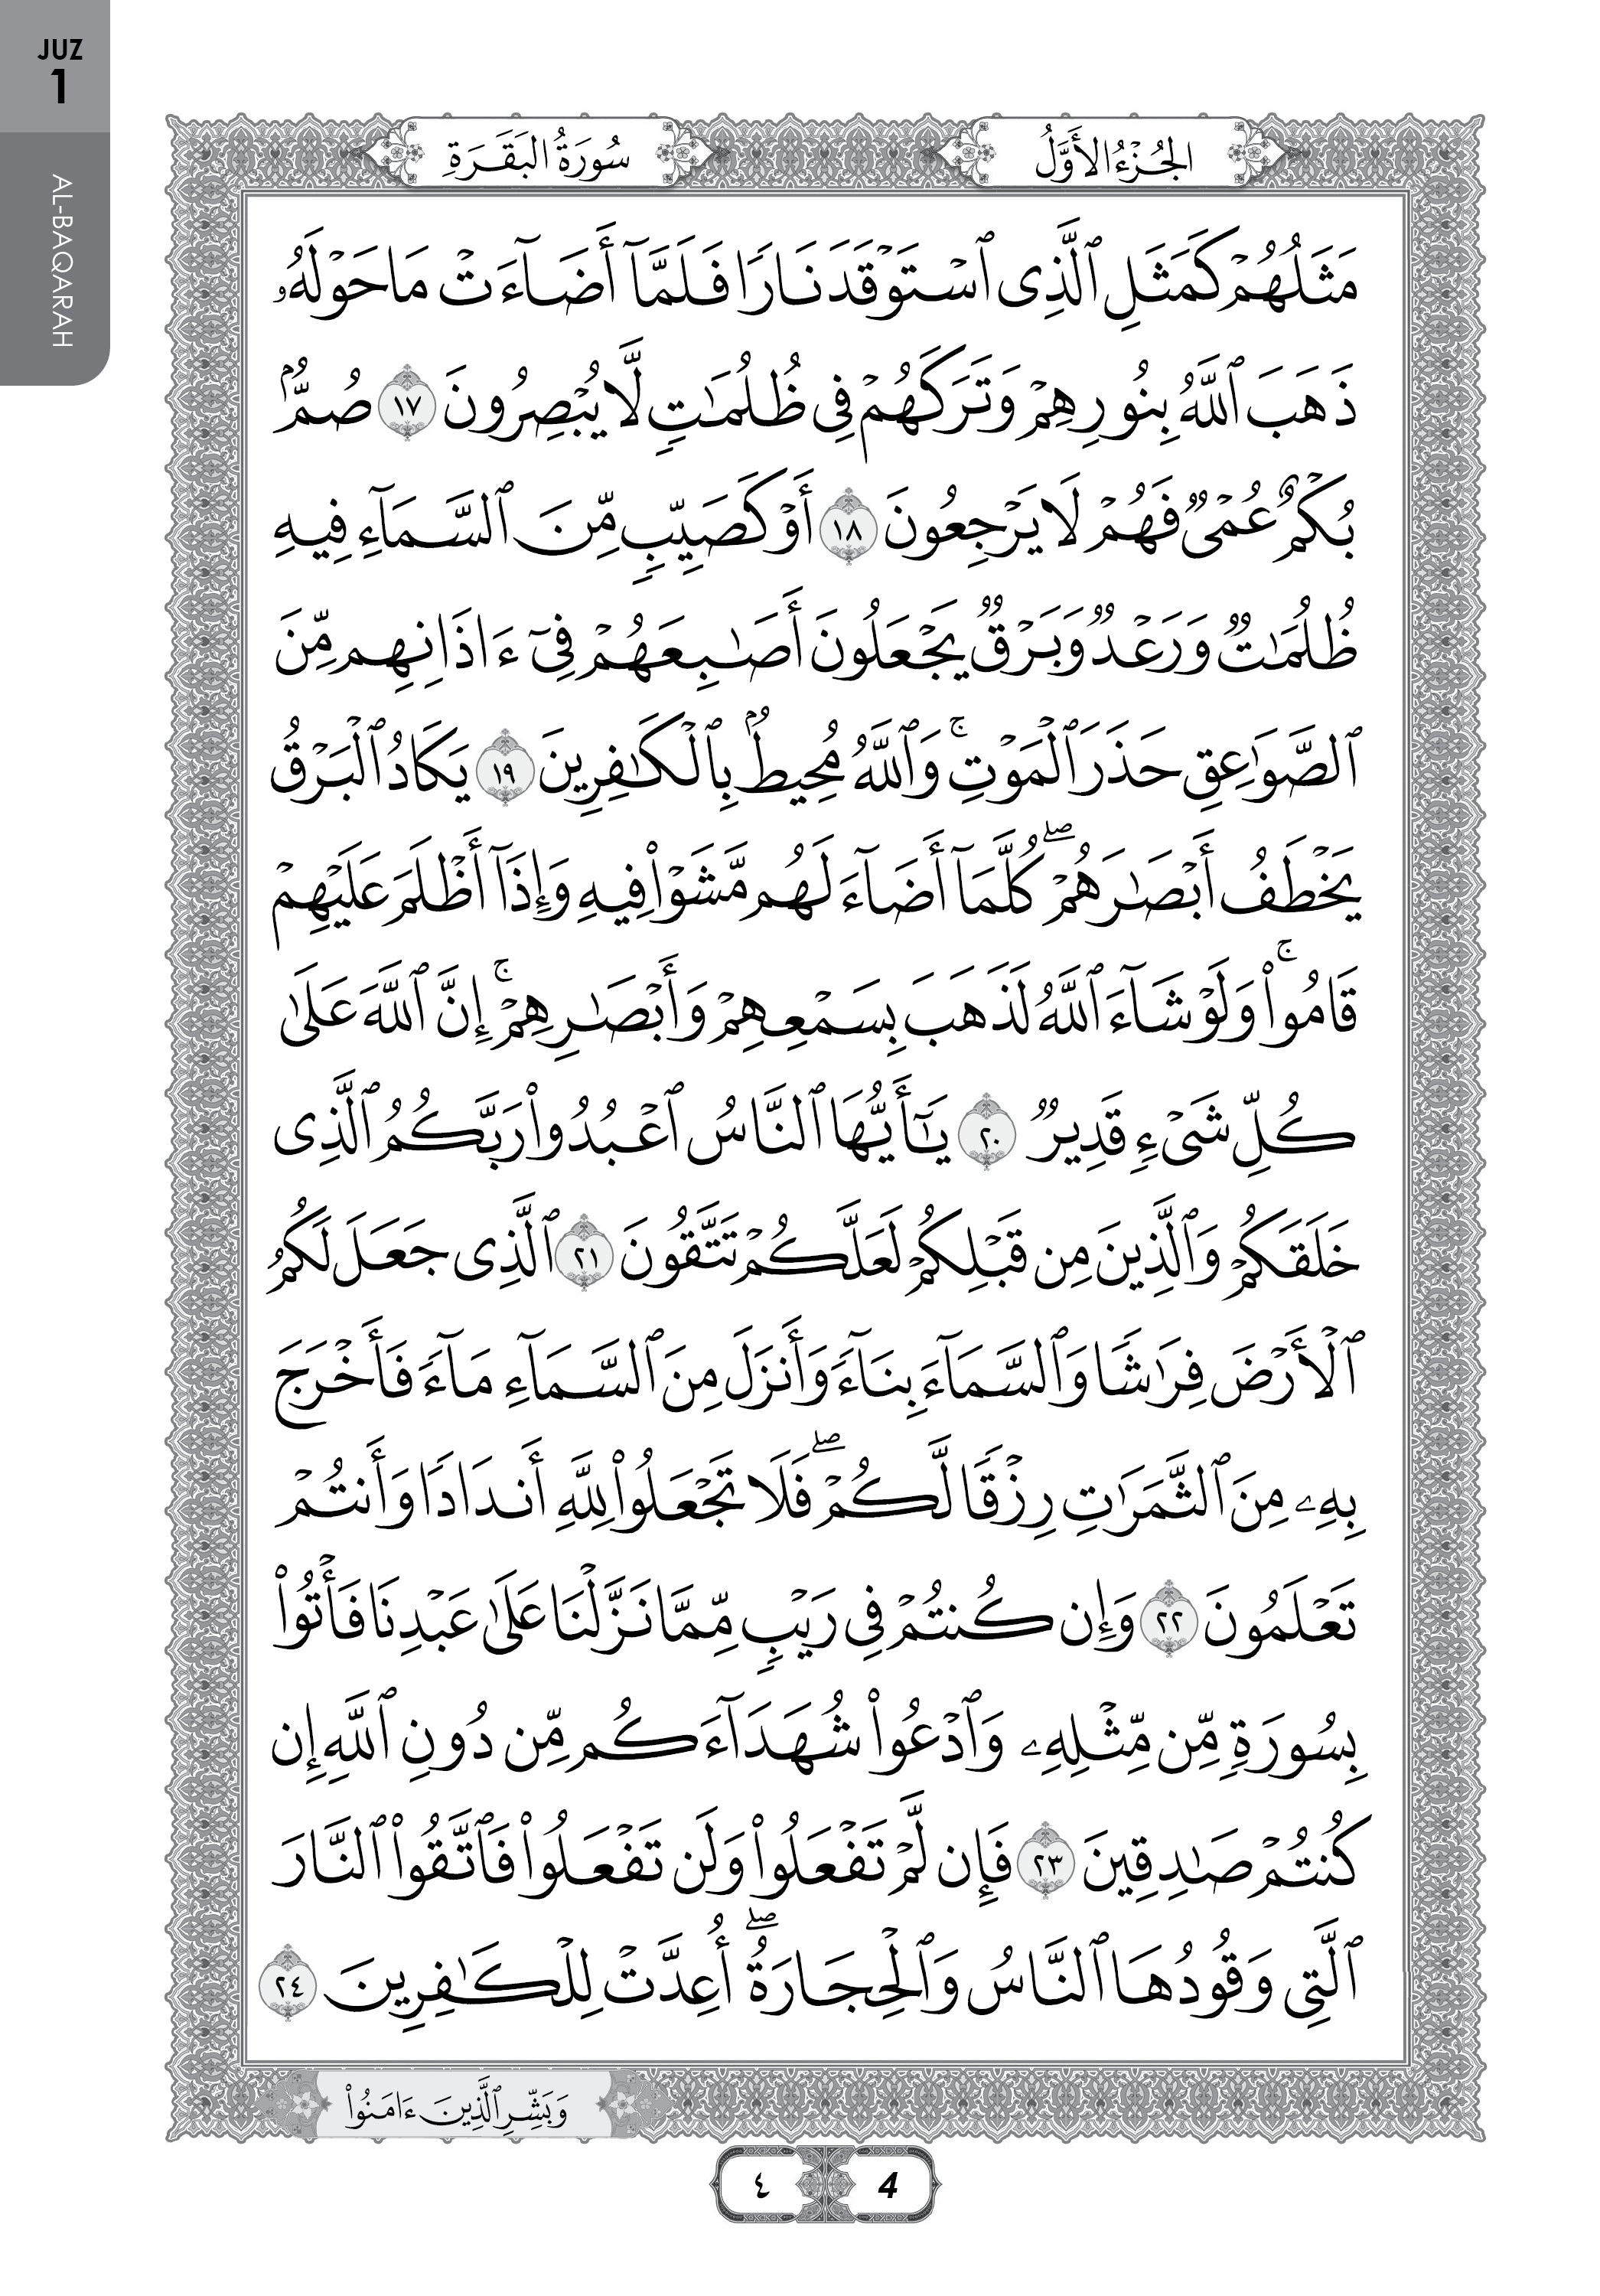 JUZ
1
AL-BAQARAH
الجُزْءُ الأَوَّلُ
سُورَةُ البَقَرَةِ
مَثَلُهُمْ كَمَثَلِ ٱلَّذِى ٱسْتَوْقَدَ نَارًا فَلَمَّآ أَضَآءَتْ مَا حَوْلَهُۥ
ذَهَبَ ٱللَّهُ بِنُورِهِمْ وَتَرَكَهُمْ فِى ظُلُمَٰتٍ لَّا يُبْصِرُونَ ١٧ صُمٌّۢ
بُكْمٌ عُمْىٌ فَهُمْ لَا يَرْجِعُونَ ١٨ أَوْ كَصَيِّبٍ مِّنَ ٱلسَّمَآءِ فِيهِ
ظُلُمَٰتٌ وَرَعْدٌ وَبَرْقٌ يَجْعَلُونَ أَصَٰبِعَهُمْ فِىٓ ءَاذَانِهِم مِّنَ
ٱلصَّوَٰعِقِ حَذَرَ ٱلْمَوْتِ ۚ وَٱللَّهُ مُحِيطٌۢ بِٱلْكَٰفِرِينَ ١٩ يَكَادُ ٱلْبَرْقُ
يَخْطَفُ أَبْصَٰرَهُمْ ۖ كُلَّمَآ أَضَآءَ لَهُم مَّشَوْا۟ فِيهِ وَإِذَآ أَظْلَمَ عَلَيْهِمْ
قَامُوا۟ ۚ وَلَوْ شَآءَ ٱللَّهُ لَذَهَبَ بِسَمْعِهِمْ وَأَبْصَٰرِهِمْ ۚ إِنَّ ٱللَّهَ عَلَىٰ
كُلِّ شَىْءٍ قَدِيرٌ ٢٠ يَٰٓأَيُّهَا ٱلنَّاسُ ٱعْبُدُوا۟ رَبَّكُمُ ٱلَّذِى
خَلَقَكُمْ وَٱلَّذِينَ مِن قَبْلِكُمْ لَعَلَّكُمْ تَتَّقُونَ ٢١ ٱلَّذِى جَعَلَ لَكُمُ
ٱلْأَرْضَ فِرَٰشًا وَٱلسَّمَآءَ بِنَآءً وَأَنزَلَ مِنَ ٱلسَّمَآءِ مَآءً فَأَخْرَجَ
بِهِۦ مِنَ ٱلثَّمَرَٰتِ رِزْقًا لَّكُمْ ۖ فَلَا تَجْعَلُوا۟ لِلَّهِ أَندَادًا وَأَنتُمْ
تَعْلَمُونَ ٢٢ وَإِن كُنتُمْ فِى رَيْبٍ مِّمَّا نَزَّلْنَا عَلَىٰ عَبْدِنَا فَأْتُوا۟
بِسُورَةٍ مِّن مِّثْلِهِۦ وَٱدْعُوا۟ شُهَدَآءَكُم مِّن دُونِ ٱللَّهِ إِن
كُنتُمْ صَٰدِقِينَ ٢٣ فَإِن لَّمْ تَفْعَلُوا۟ وَلَن تَفْعَلُوا۟ فَٱتَّقُوا۟ ٱلنَّارَ
ٱلَّتِى وَقُودُهَا ٱلنَّاسُ وَٱلْحِجَارَةُ ۖ أُعِدَّتْ لِلْكَٰفِرِينَ ٢٤
وَبَشِّرِ ٱلَّذِينَ ءَامَنُوا۟
٤ 4